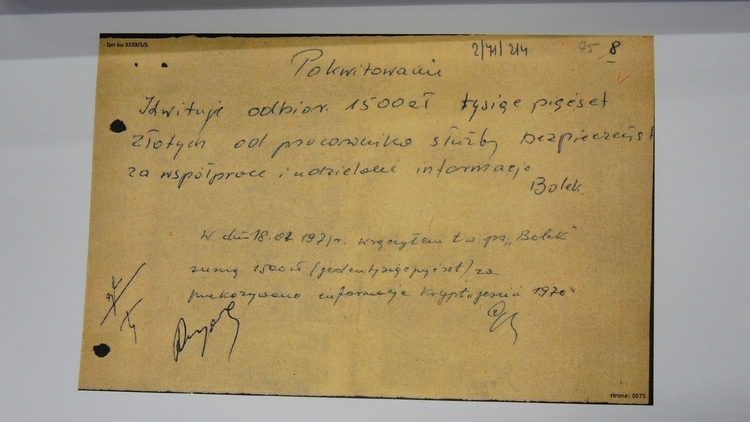 ipn bu 3333/1/1
2/71/214 75 8
Pokwitowanie
Kwituje odbior. 1500 zł tysiąc pięćset
Złotych od pracownika służby bezpieczeńst
za współprace i udzielanie informacje
Bolek
W dniu 18.01 1971r. wręczyłem t.w. ps. „Bolek"
sumę 1500 zł (jeden tysiąc pięćset) za
przekazywane informacje kryptonim 1970"
strona: 0075